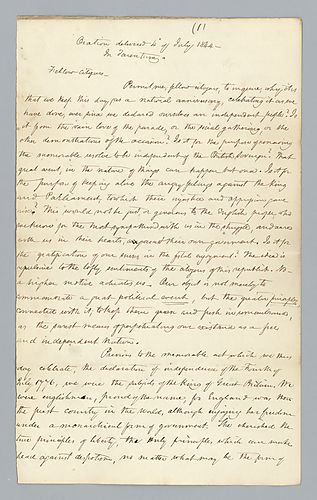 (1
Oration delivered 4th of July 1844—
In Tarentum,
Fellow Citizens—
Permit me, fellow citizens, to inquire, why it is
that we keep this day, as a national anniversary, celebrating it as we
have done, ever since we declared ourselves an independent people? Is
it from the vain love of the parade, or the social gathering, or the
other demonstrations of the occasion? Is it for the purpose of renewing
the memorable resolve to be independent of the British Sovereign? That
great event, in the nature of things can happen but once. Is it for
the purpose of keeping alive the angry feelings against the King
and Parliament, to which their injustice and oppression gave
rise? This would not be just or generous to the English people, who
for the most part in the struggle, and were
with us in their hearts, against their own government. Is it for
the gratification of our in the enjoyment? The idea is
repulsive to the lofty sentiments of the citizens of this republic. No—
a higher motive actuates us. Our object is not merely to
commemorate a great political event, but the greater principles
connected with it, to keep them green and fresh in remembrance,
as the surest means of perpetuating our existence as a free
and independent Nation.
Previous to the memorable act which we this
day celebrate, the declaration of independence of the Fourth of
July 1776, we were the subjects of the King of Great Britain. We
were englishmen, proud of the name; for England was then
the first country in the world, although enjoying her freedom
under a monarchical form of government. She cherished the
true principles of liberty, the only principles which can make
head against despotism, no matter what may be the form of